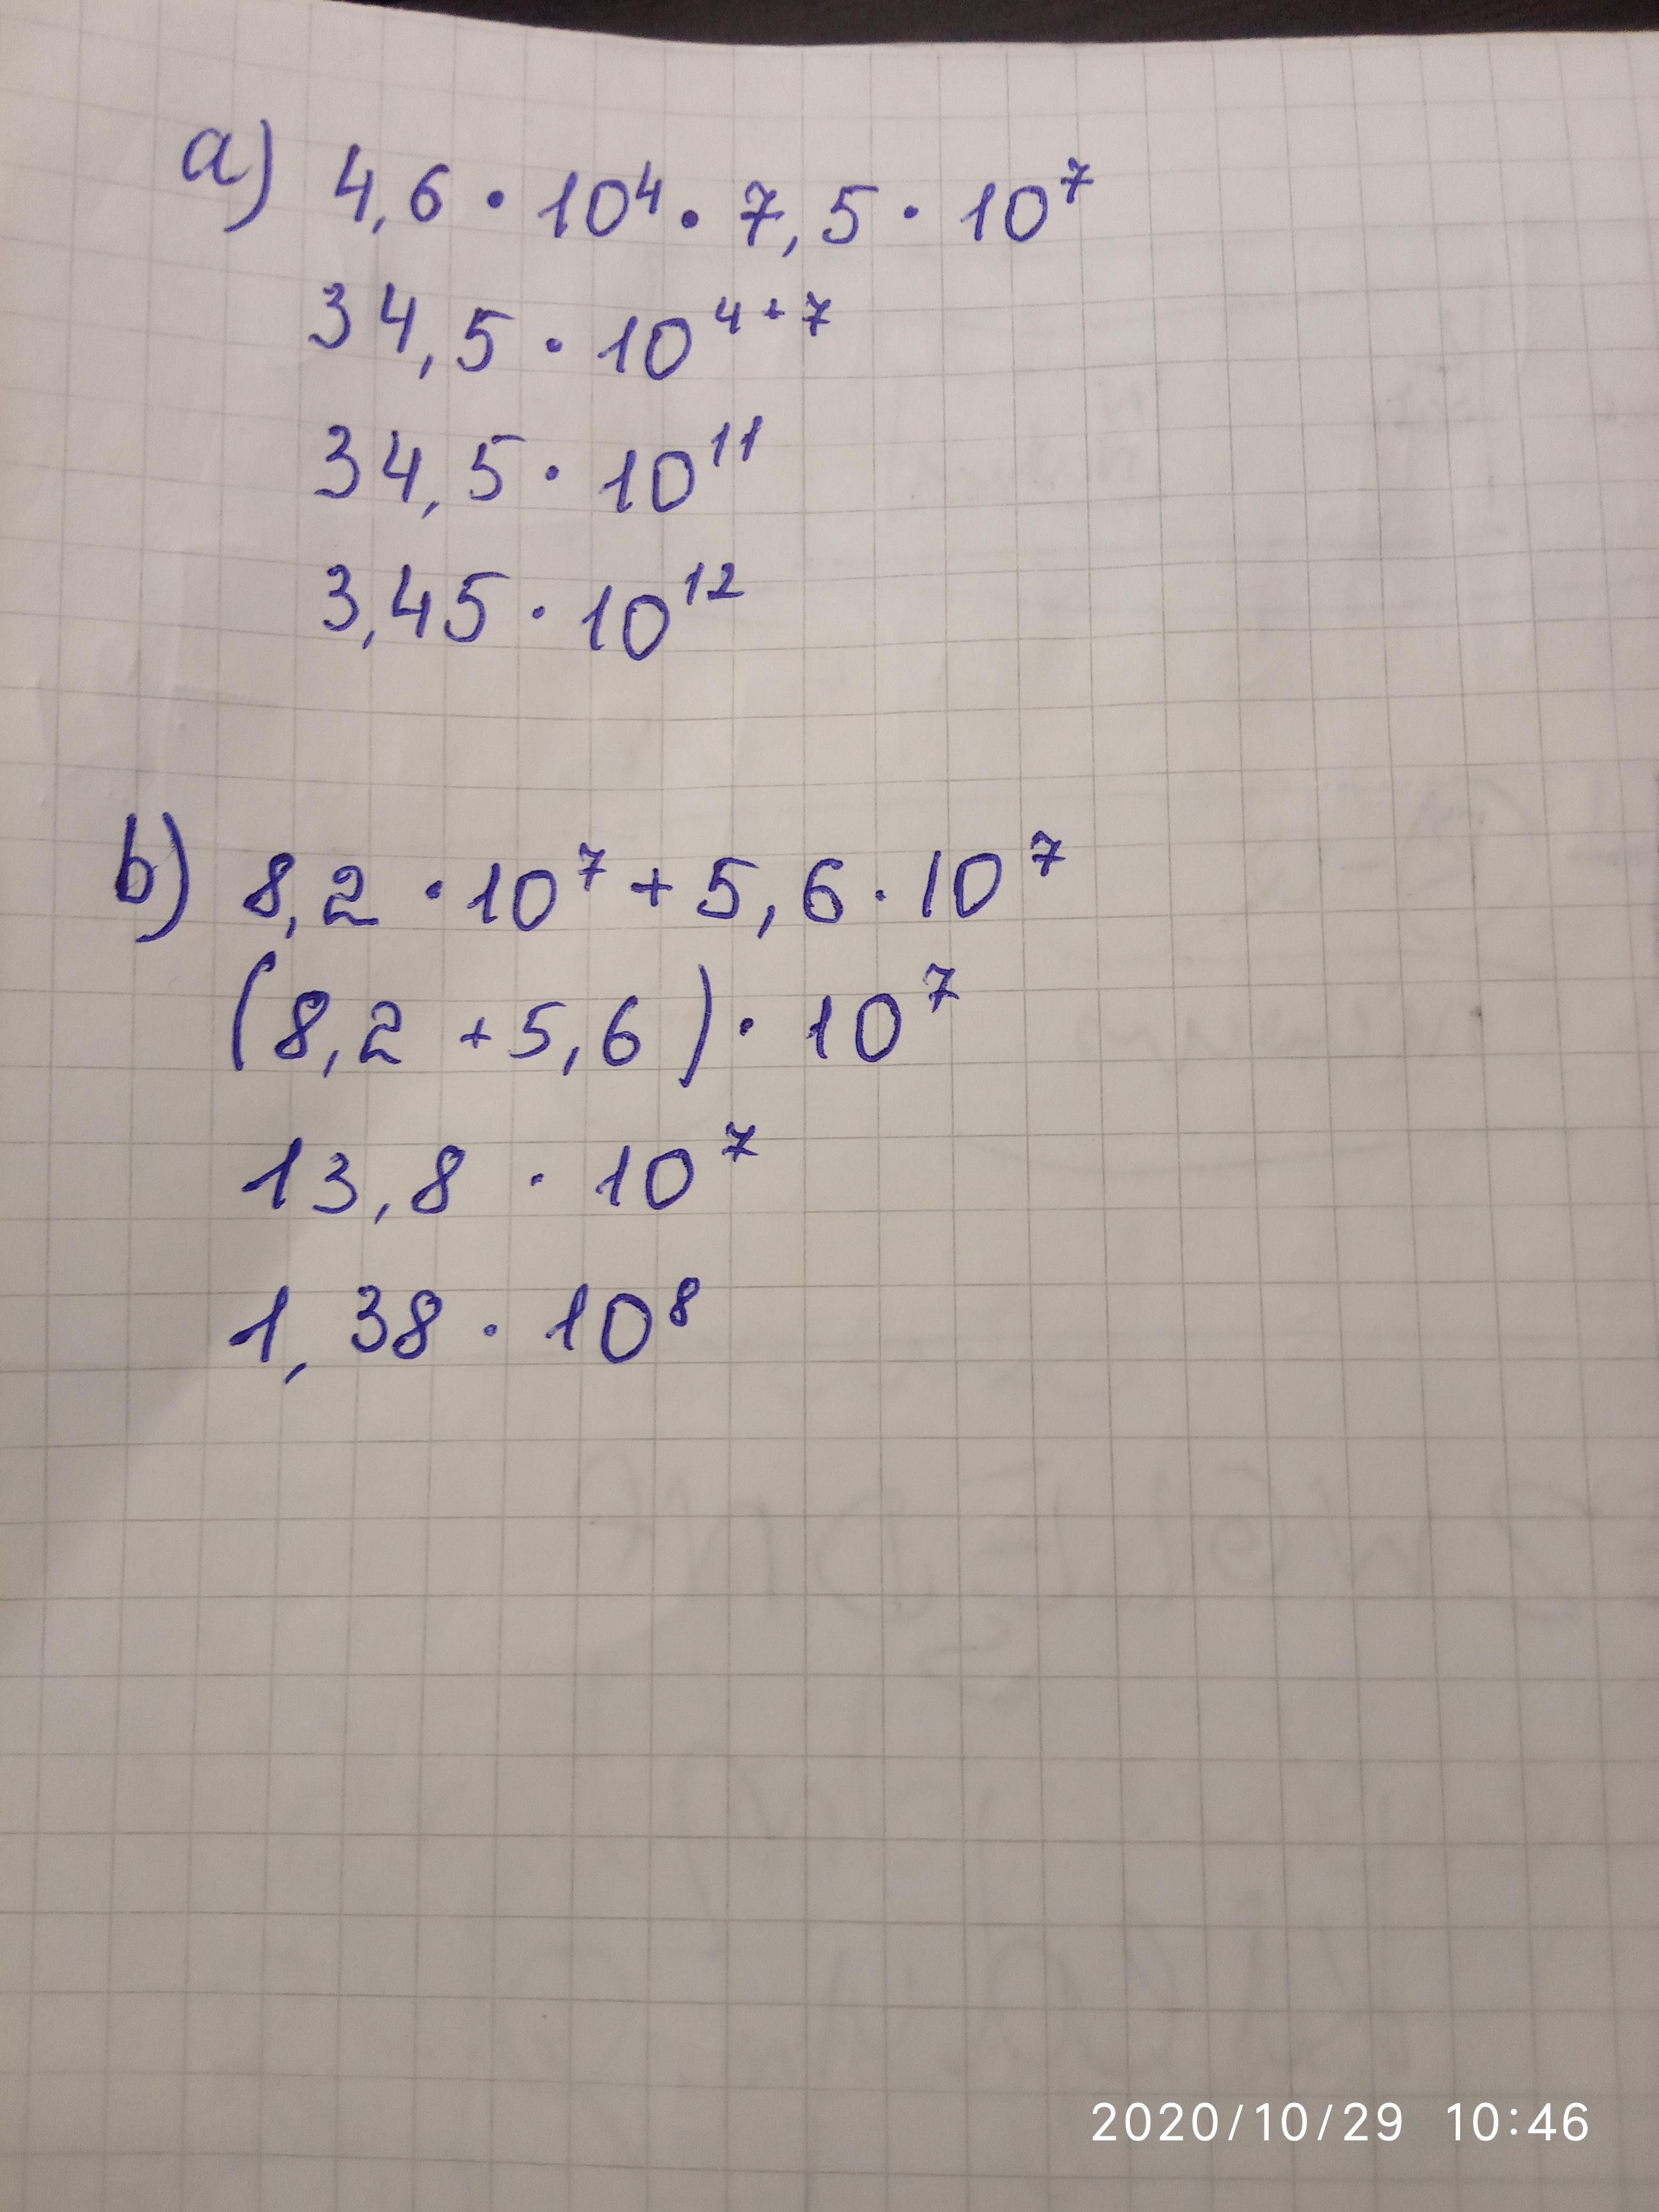 a) 4,6 · 10⁴ · 7,5 · 10⁷
34,5 · 10⁴⁺⁷
34,5 · 10¹¹
3,45 · 10¹²
b) 8,2 · 10⁷ + 5,6 · 10⁷
(8,2 + 5,6) · 10⁷
13,8 · 10⁷
1,38 · 10⁸
2020/10/29 10:46